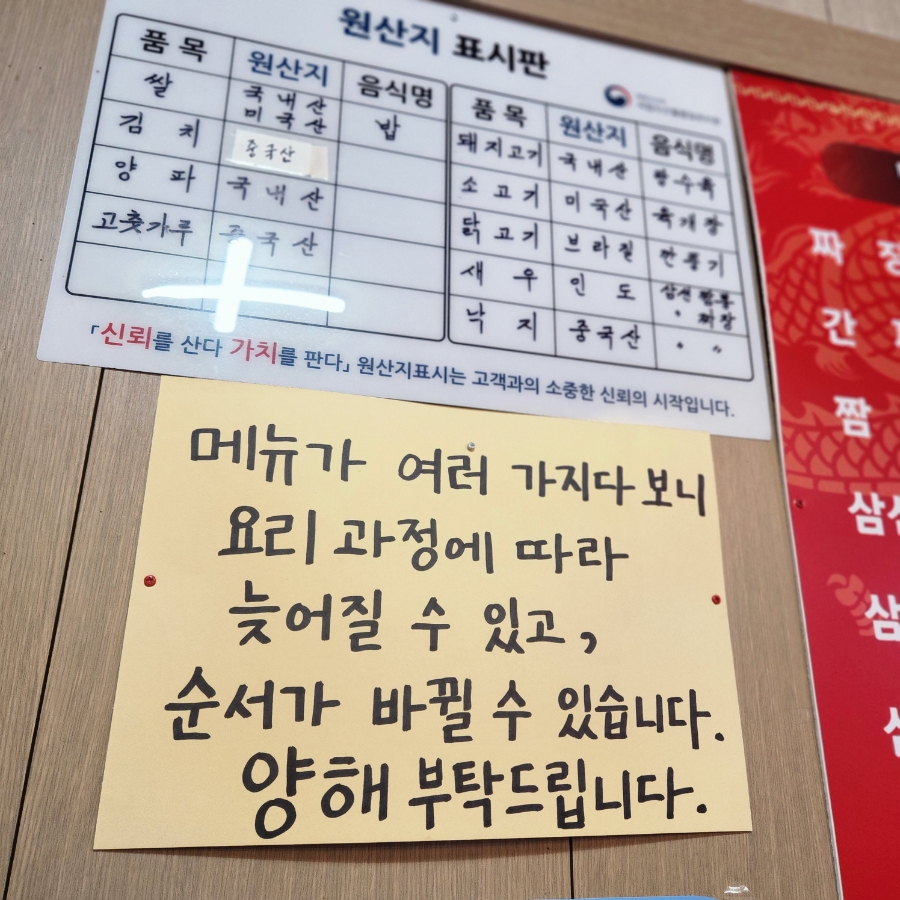 원산지 표시판
품목 원산지 음식명
쌀 국내산 미국산 밥
김치 중국산
양파 국내산
고춧가루 중국산
품목 원산지 음식명
돼지고기 국내산 탕수육
소고기 미국산 육개장
닭고기 브라질 깐풍기
새우 인도 삼선짬뽕 〃 짜장
낙지 중국산 〃 〃
「신뢰를 산다 가치를 판다」 원산지표시는 고객과의 소중한 신뢰의 시작입니다.
메뉴가 여러 가지다 보니
요리 과정에 따라
늦어질 수 있고,
순서가 바뀔 수 있습니다.
양해 부탁드립니다.
짜
간
짬
삼선
삼